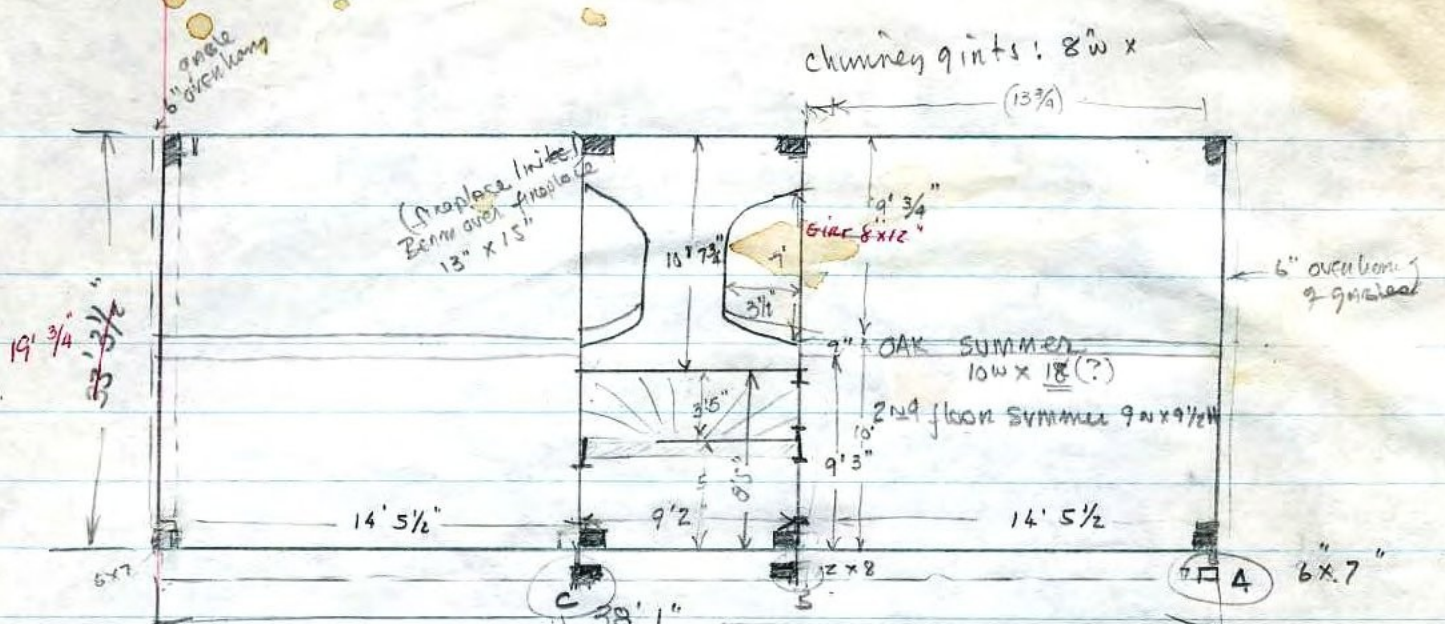 angle
6" overhang
chimney girts: 8"w x
(13 3/4)
(fireplace lintel)
Beam over fireplace
13" x 15"
10' 7 3/4"
9' 3/4"
Girt 8"x12"
7'
3 1/2"
6" overhang
19' 3/4"
33' 3 1/2"
9"
OAK SUMMER
10w x 18 (?)
2nd floor summer 9w x 9 1/2H
3'5"
10'
9'3"
5
8'5"
14' 5 1/2"
9'2"
14' 5 1/2
6x7
C
38' 1"
12 x 8
A
6" x 7"